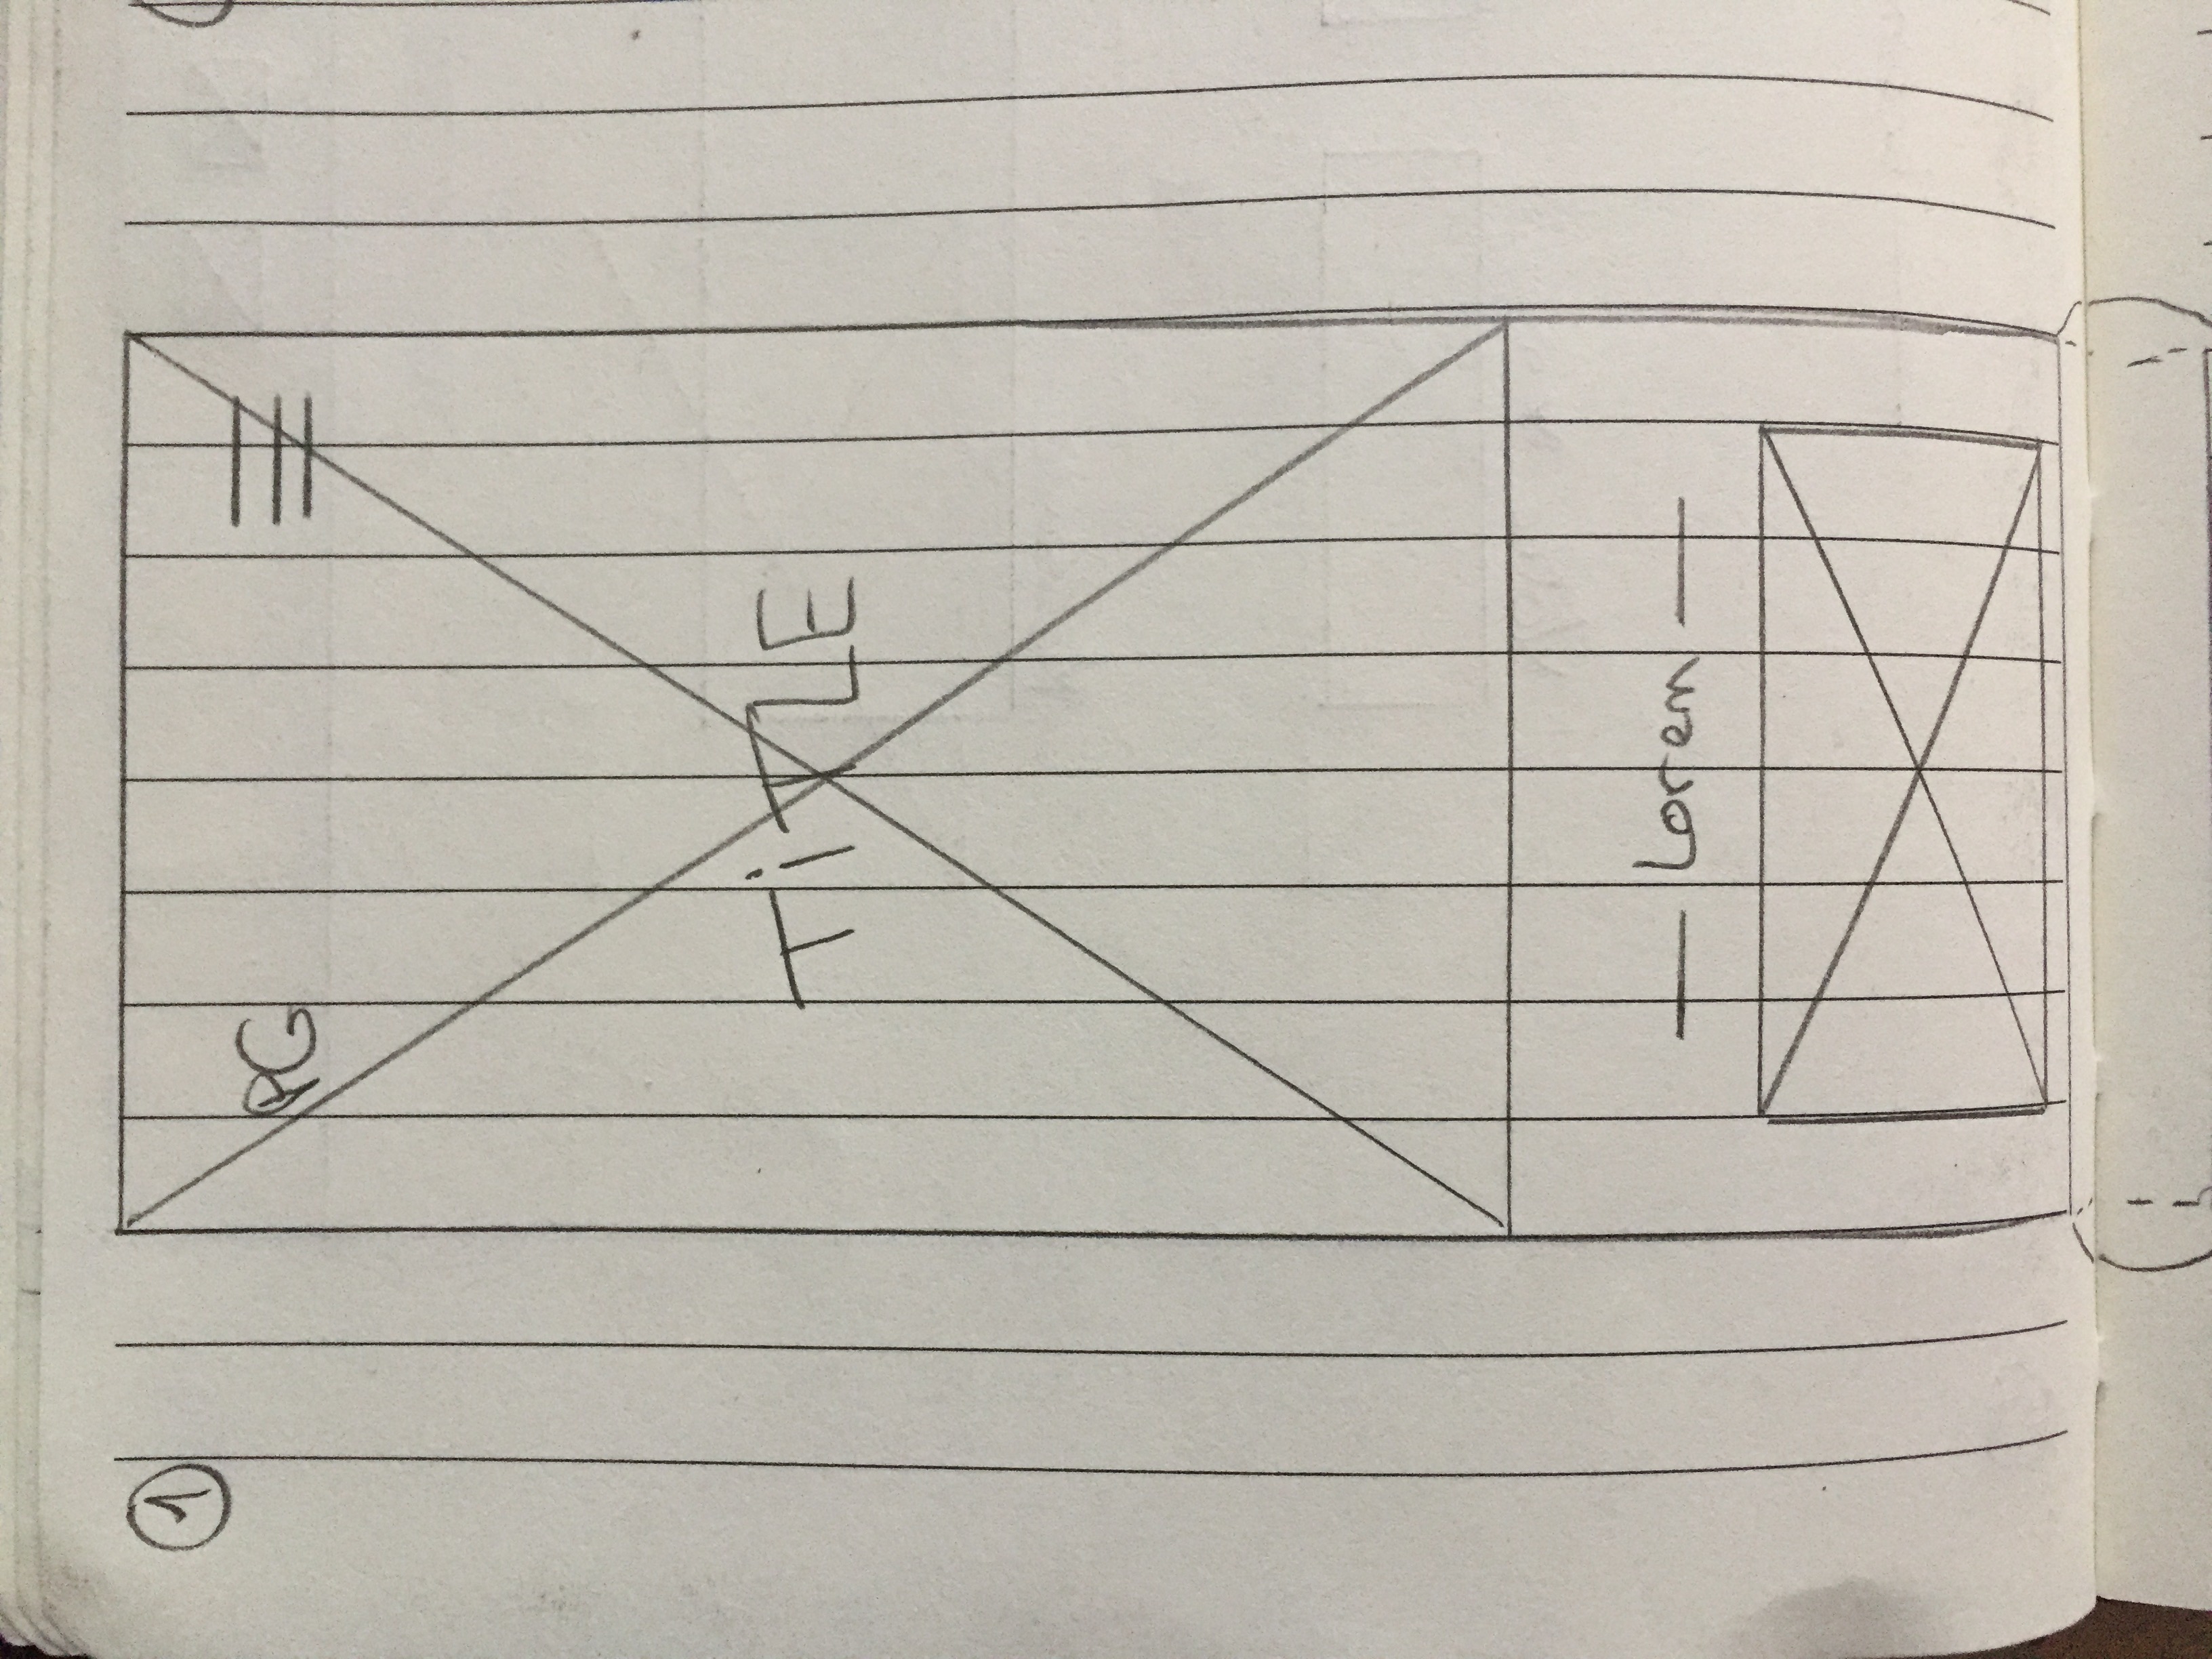 1
PG
TiTLE
Lorem